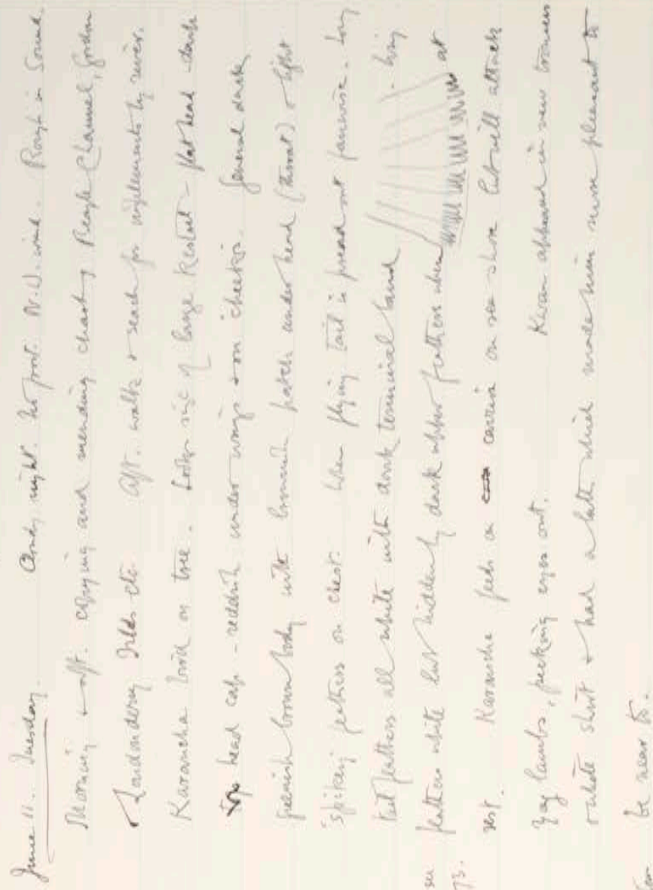 June 11. Tuesday. Cloudy night. No frost. N.W. wind. Rough in Sound.
Morning & aft. copying and mending charts, Beagle Channel, Gordon
& Londonderry Islds etc. Aft. walk & search for implements by river.
Karancha bird on tree. Looks size of large Kestrel - flat head - dark
head cap - reddish under wings & on cheeks. General dark
greenish brown body with brownish patch under head (throat) & light
spikey feathers on chest. When flying tail is spread out fanwise.
tail feathers all white with dark terminal band - 
feathers white but hidden by dark upper feathers when at
rest. Karancha feeds on carrion on sea shore but will attack
lambs, pecking eyes out. Kwan appeared in new trousers
white shirt & had a bath which made him more pleasant to
be near to.
see
73.